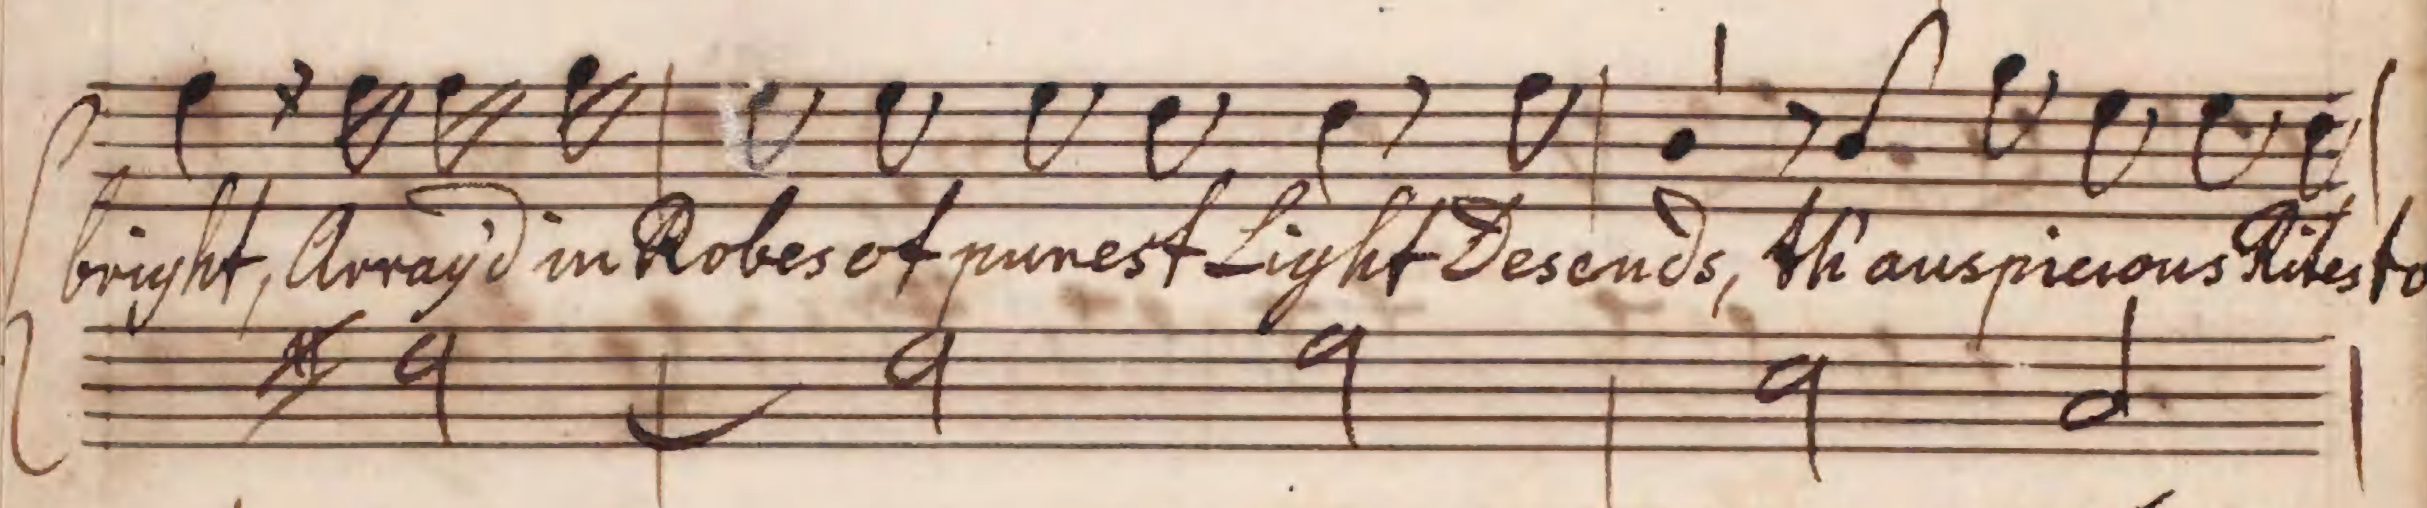 bright, Array'd in Robes of purest Light Desends, th'auspicious Rites to